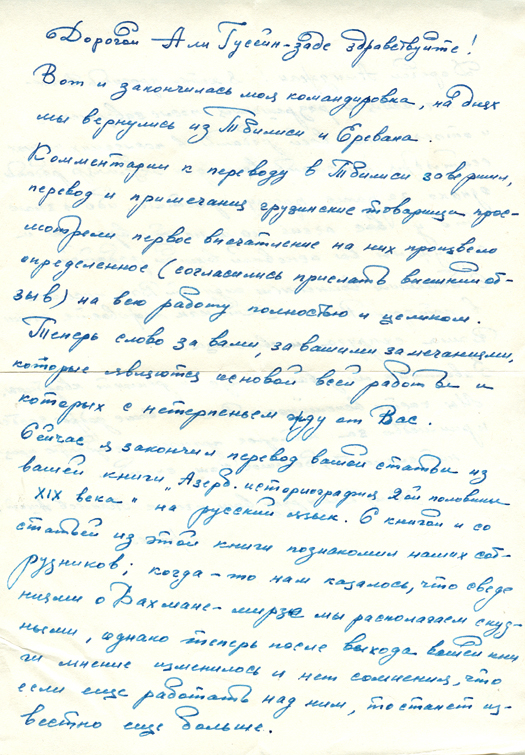 Дорогой Али Гуссейн-заде здравствуйте!
Вот и закончилась моя командировка, на днях
мы вернулись из Тбилиси и Еревана.
Комментарии к переводу в Тбилиси завершил,
перевод и примечания грузинские товарищи прос-
мотрели первое впечатление на них произвело
определенное (согласились прислать внешний от-
зыв) на всю работу полностью и целиком.
Теперь слово за вами, за вашими замечаниями,
которые являются основой всей работы и
которых с нетерпеньем жду от Вас.
Сейчас я закончил перевод вашей статьи из
вашей книги „Азерб. историография 2ой половины
XIX века" на русский язык. С книгой и со
статьей из этой книги познакомил наших сот-
рудников; когда-то нам казалось, что сведе
ниями о Бахмане-мирзе мы располагаем скуд-
ными, однако теперь после выхода вашей кни
ги мнение изменилось и нет сомнения, что
если еще работать над ним, то станет из-
вестно еще больше.